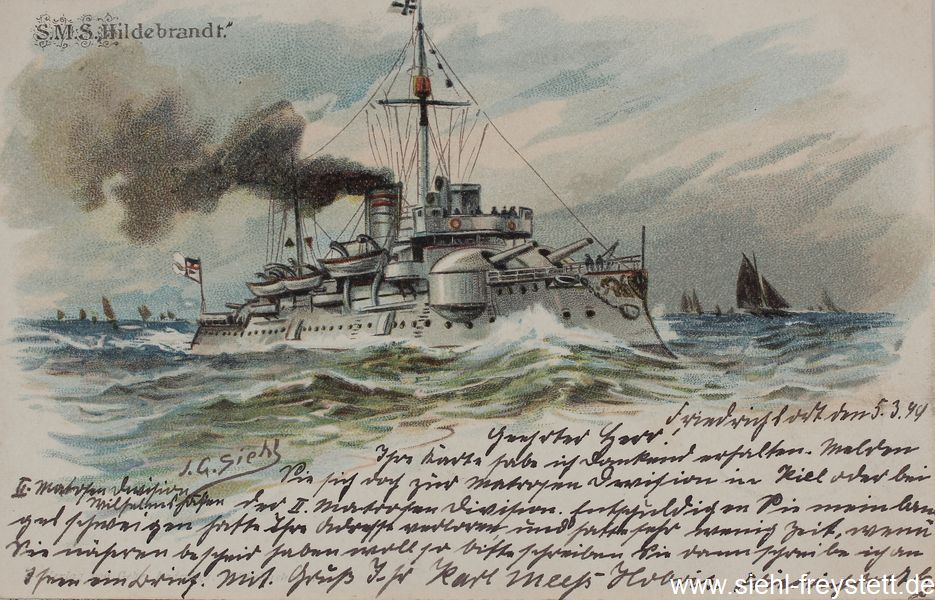 S.M.S. „Hildebrandt."
Friedrichsort den 5.3.99
Geehrter Herr!
J.G. Siehl
Ihre Karte habe ich Dankend erhalten. Melden
II. Matrosen Division
Wilhelmshafen
Sie sich doch zur Matrosen Division in Kiel oder bei
der II. Matrosen Division. Entschuldigen Sie mein lan
ges schweigen hatte Ihre Adresse verloren und hatte sehr wenig Zeit, wenn
Sie näheren bescheid haben woll so bitte schreiben Sie dann schreibe ich an
Ihnen ein Brief. Mit Gruß Ihr Karl
www.siehl-freystett.de